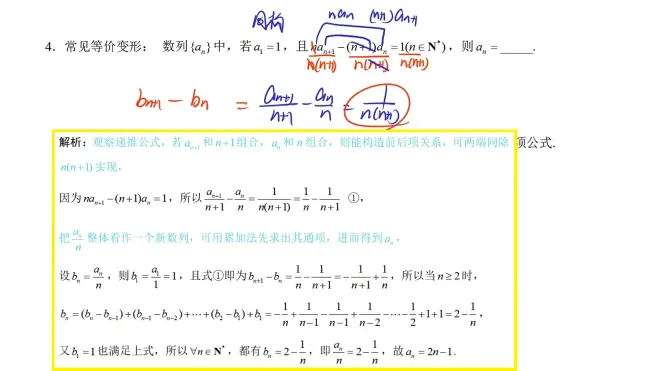 同构 na_n (n+1)a_{n+1}
4. 常见等价变形： 数列{a_n}中，若a_1=1，且na_{n+1}-(n+1)a_n=1(n∈N*)，则a_n=_____.
n(n+1) n(n+1) n(n+1)
b_{n+1}-b_n = \frac{a_{n+1}}{n+1}-\frac{a_n}{n}=\frac{1}{n(n+1)}
解析：观察递推公式，若a_{n+1}和n+1组合，a_n和n组合，则能构造前后项关系，可两端同除 项公式.
n(n+1)实现，
因为na_{n+1}-(n+1)a_n=1，所以\frac{a_{n+1}}{n+1}-\frac{a_n}{n}=\frac{1}{n(n+1)}=\frac{1}{n}-\frac{1}{n+1} ①，
把\frac{a_n}{n}整体看作一个新数列，可用累加法先求出其通项，进而得到a_n.
设b_n=\frac{a_n}{n}，则b_1=\frac{a_1}{1}=1，且式①即为b_{n+1}-b_n=\frac{1}{n}-\frac{1}{n+1}=-\frac{1}{n+1}+\frac{1}{n}，所以当n≥2时，
b_n=(b_n-b_{n-1})+(b_{n-1}-b_{n-2})+⋯+(b_2-b_1)+b_1=-\frac{1}{n}+\frac{1}{n-1}-\frac{1}{n-1}+\frac{1}{n-2}-⋯-\frac{1}{2}+1+1=2-\frac{1}{n}，
又b_1=1也满足上式，所以∀n∈N*，都有b_n=2-\frac{1}{n}，即\frac{a_n}{n}=2-\frac{1}{n}，故a_n=2n-1.